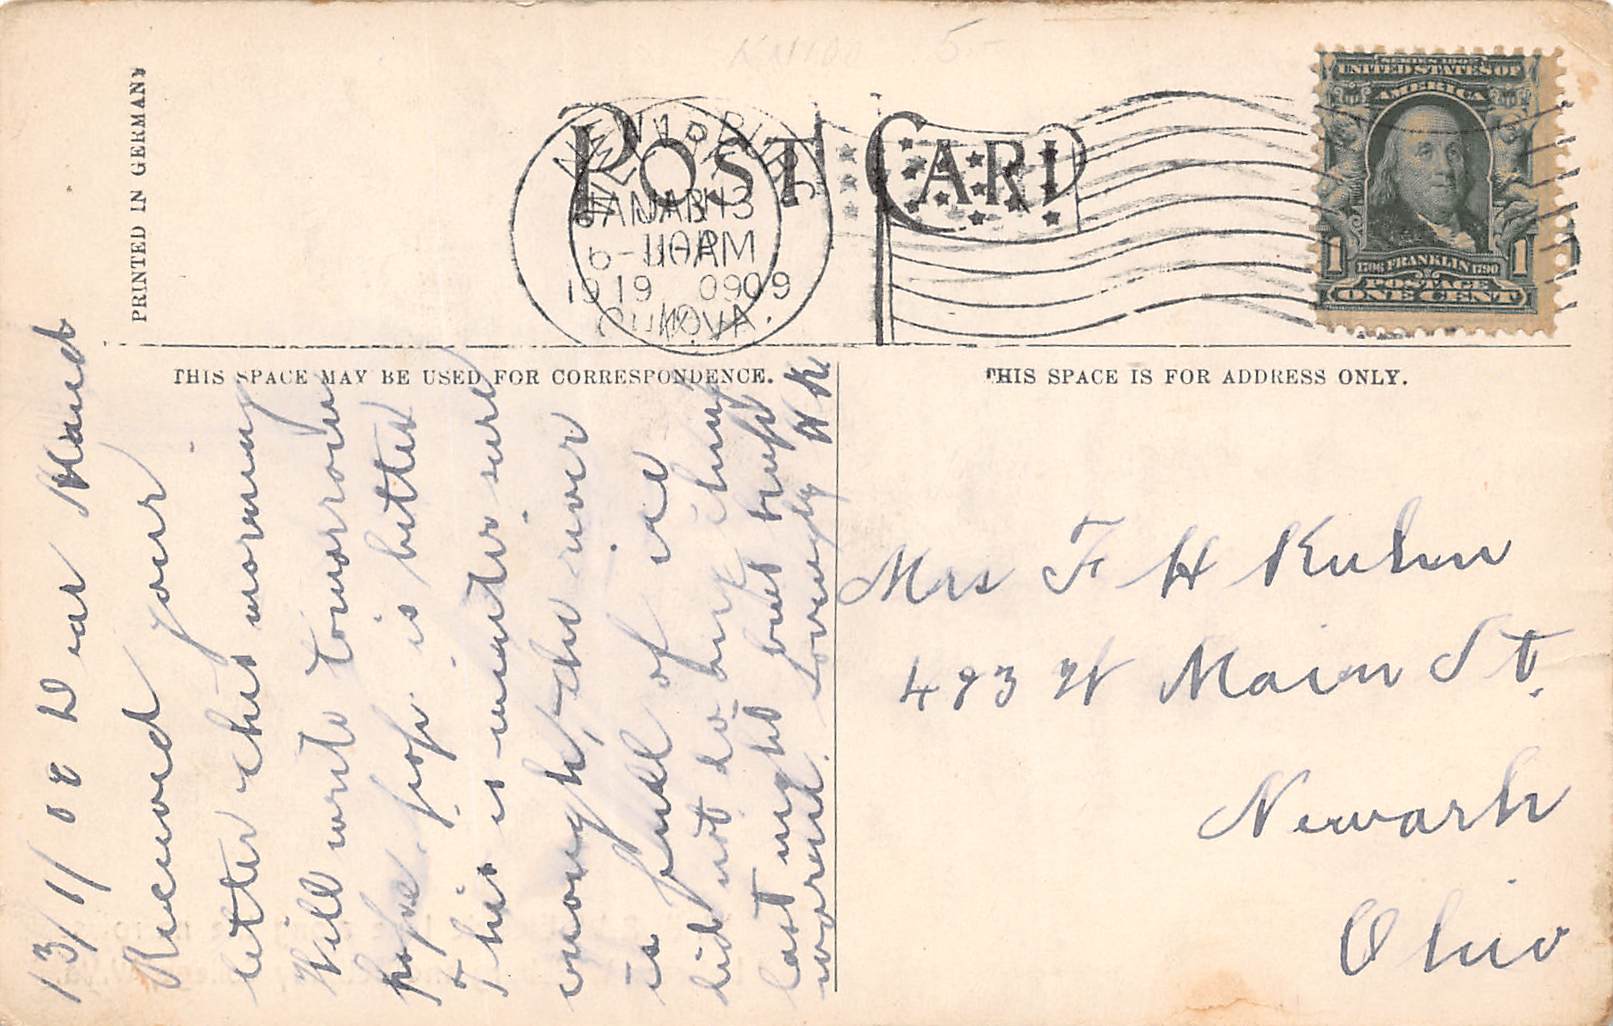 PRINTED IN GERMANY
POST CARD
JAN 13
1909
W.VA.
SERIES 1902
UNITED STATES OF
AMERICA
1 1706 FRANKLIN 1790 1
POSTAGE
ONE CENT
THIS SPACE MAY BE USED FOR CORRESPONDENCE.
THIS SPACE IS FOR ADDRESS ONLY.
13/1/08 Dear Maud
Received your
letter this morning
Will write tomorrow
hope is better
This is winter sure
enough, the river
is full of ice
did not do
last night but
worried. Lovingly
Mrs F H Kuhn
493 W Main St.
Newark
Ohio